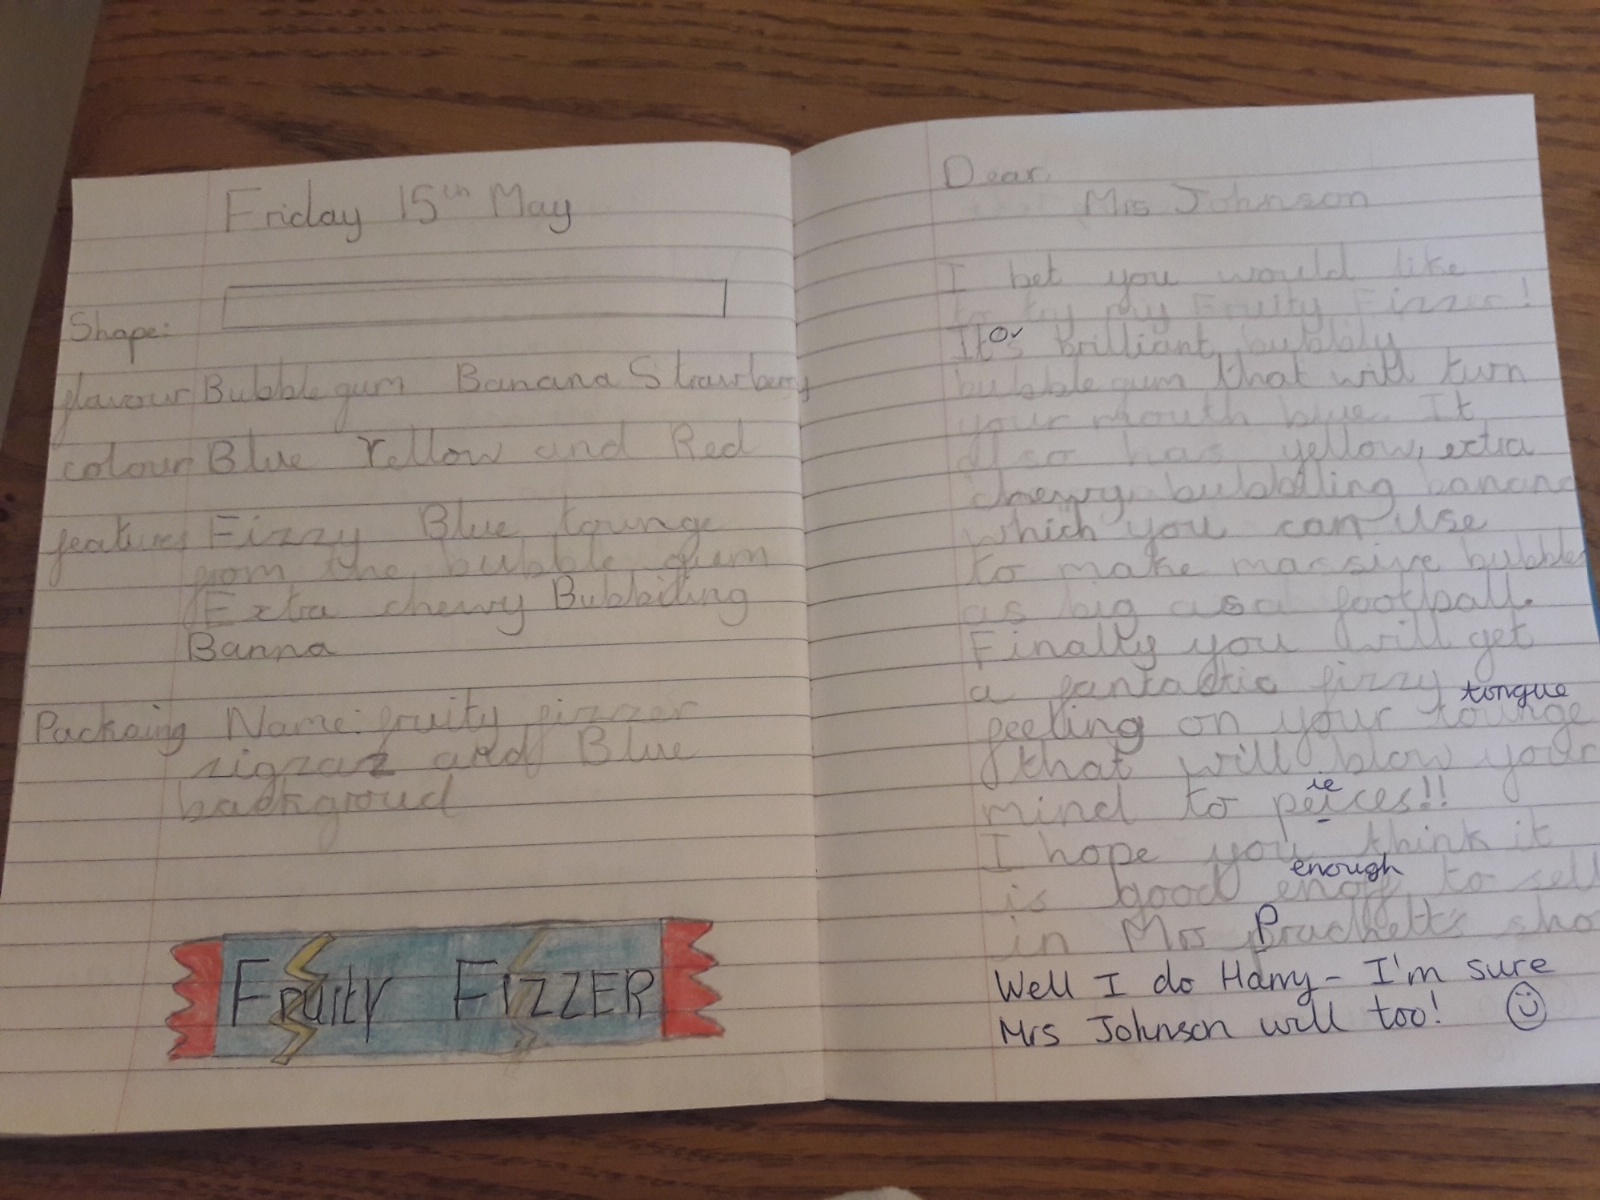 Friday 15th May
Shape:
flavour Bubblegum Banana Strawberry
colour Blue Yellow and Red
features Fizzy Blue tounge
from the bubble gum
Extra chewy Bubbiling
Banna
Packaing Name: fruity fizzer
zigzaz and Blue
backgroud
Fruity FIZZER
Dear
Mrs Johnson
I bet you would like
to try my Fruity Fizzer!
It's brilliant, bubbly
bubblegum that will turn
your mouth blue. It
also has yellow, extra
chewy bubbiling banana
which you can use
to make massive bubbles
as big as a football.
Finally you will get
a fantastic fizzy
tongue
feeling on your tounge
that will blow your
ie
mind to peices!!
I hope you think it
enough
is good to sell
in Mrs Prachett's sho
Well I do Harry - I'm sure
Mrs Johnson will too!